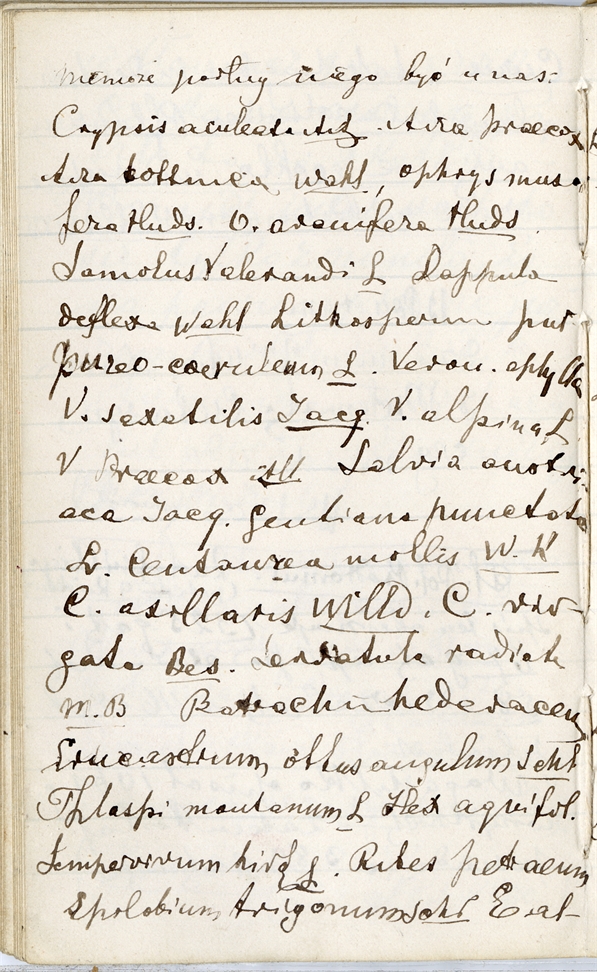 niemoże podług niego być u nas:
Crypsis aculeata Ait. Aira praecox
Aira bottnica Wahl, ophrys musci
fera Huds. O. aranifera Huds.
Samolus Valerandi L Lappula
deflexa Wahl Lithospermum pur
pureo-coeruleum L. Veron. aphylla
V. saxatilis Jacq V. alpina L
V Praecox All Salvia austri
aca Jacq. Gentiana punctata
L. Centaurea mollis W. K
C. axillaris Willd. C. vir-
gata Bes. Serratula radiata
M.B Batrachiū hederaceū
Erucastrum obtusangulum Schl
Thlaspi montanum L Ilex aquifol.
Sempervivum hirt L. Ribes petraeum
Epilobium trigonum Schr E. al-